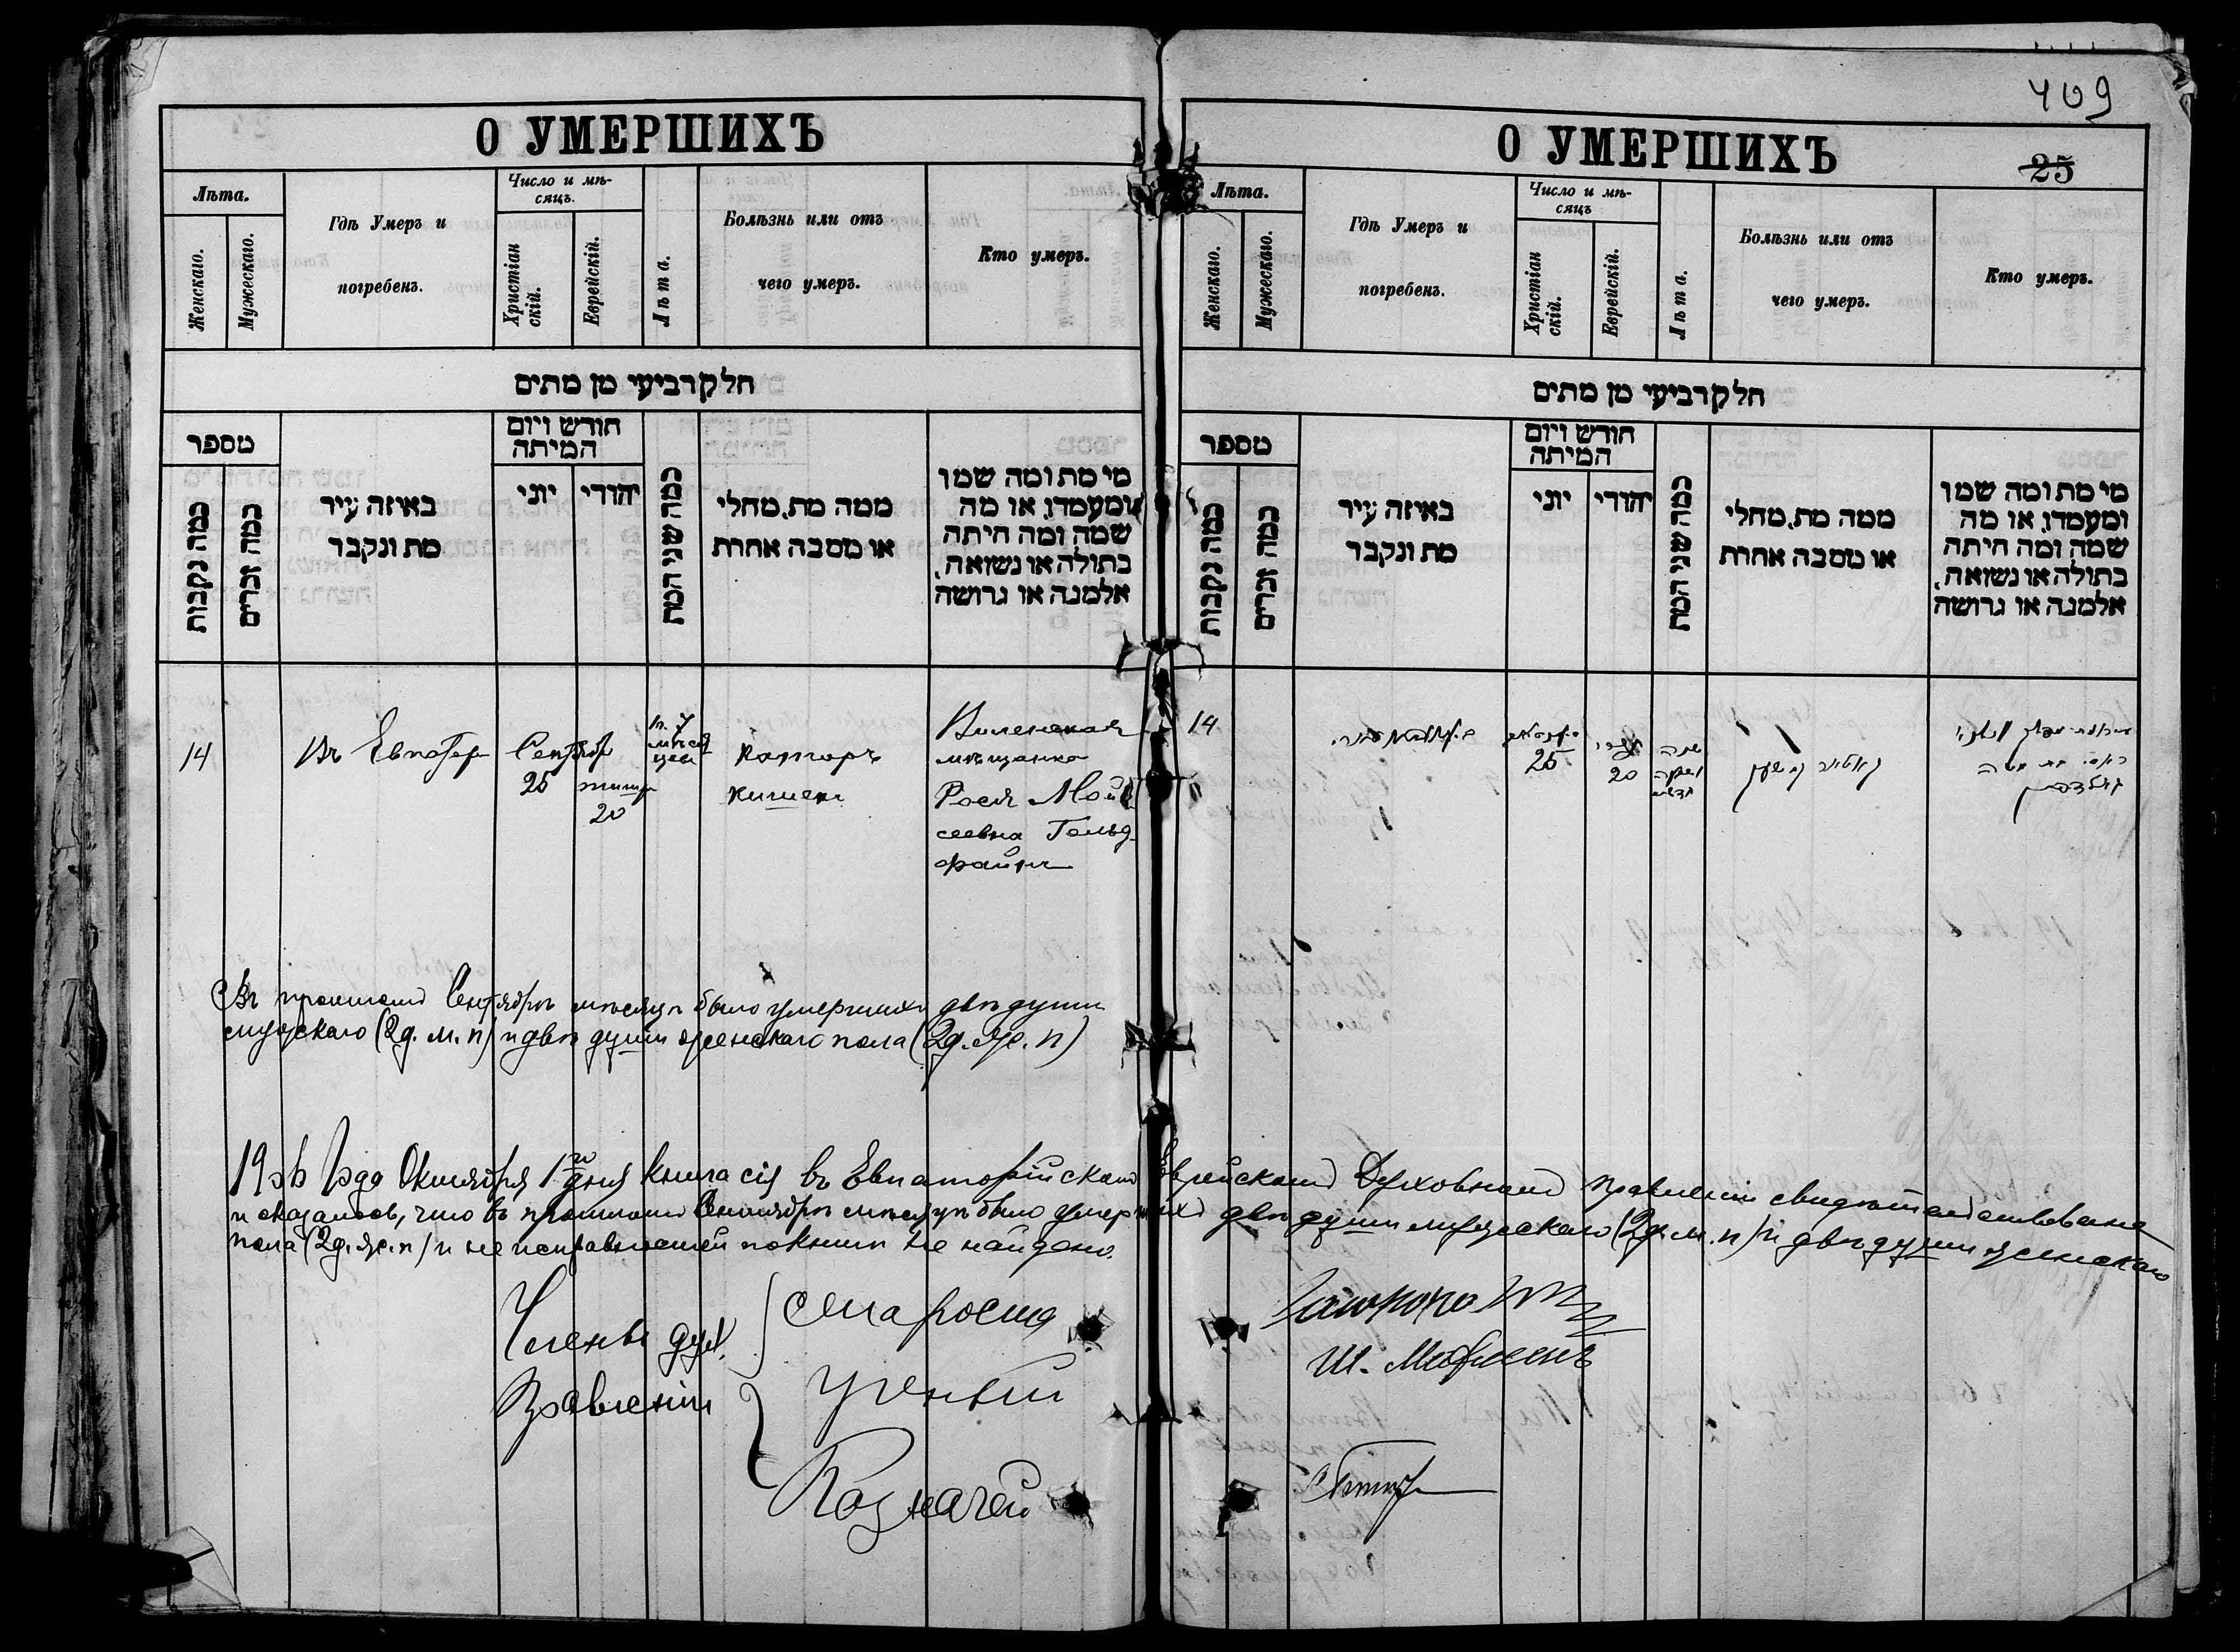 О УМЕРШИХЪ
Лѣта.
Женскаго.
Мужескаго.
Гдѣ Умеръ и
погребенъ.
Число и мѣ-
сяцъ.
Христіан
скій.
Еврейскій.
Лѣта.
Болѣзнь или отъ
чего умеръ.
Кто умеръ.
חלק רביעי מן מתים
מספר
כמה נקבות
כמה זכרים
באיזה עיר
מת ונקבר
חודש ויום
המיתה
יוני
יהודי
כמה שני המת
ממה מת, מחלי
או מסבה אחרת
מי מת ומה שמו
ומעמדו, או מה
שמה ומה היתה
בתולה או נשואה,
אלמנה או גרושה
14
Въ Евпатор
Сентябр
25
тишри
20
1 г. 7
мѣся
цев
катаръ
кишекъ
Виленская
мѣщанка
Рося Мой
сеевна Гольд-
файнъ
Въ прошломъ Сентябрѣ мѣсяцѣ было умершихъ двѣ души
мужскаго (2 д. м. п) и двѣ души женскаго пола (2 д. ж. п)
409
О УМЕРШИХЪ
25
Лѣта.
Женскаго.
Мужескаго.
Гдѣ Умеръ и
погребенъ.
Число и мѣ-
сяцъ
Христіан
скій.
Еврейскій.
Лѣта.
Болѣзнь или отъ
чего умеръ.
Кто умеръ.
חלק רביעי מן מתים
מספר
כמה נקבות
כמה זכרים
באיזה עיר
מת ונקבר
חודש ויום
המיתה
יוני
יהודי
כמה שני המת
ממה מת, מחלי
או מסבה אחרת
מי מת ומה שמו
ומעמדו, או מה
שמה ומה היתה
בתולה או נשואה,
אלמנה או גרושה
14
25
תשרי
20
שנה
חדשים
בת משה
גולדפיין
Года Октября 1го дня книга сія въ Евпаторійскомъ Еврейскомъ Духовномъ Правленіи свидѣтельствована
и оказалось, что въ прошломъ Сентябрѣ мѣсяцѣ было умершихъ двѣ души мужескаго (2 д. м. п) и двѣ души женскаго
пола (2 д. ж. п) и неисправностей по книгѣ не найдено.
Члены дух.
Правленія
Староста
Ученый
Казначей
Ш.